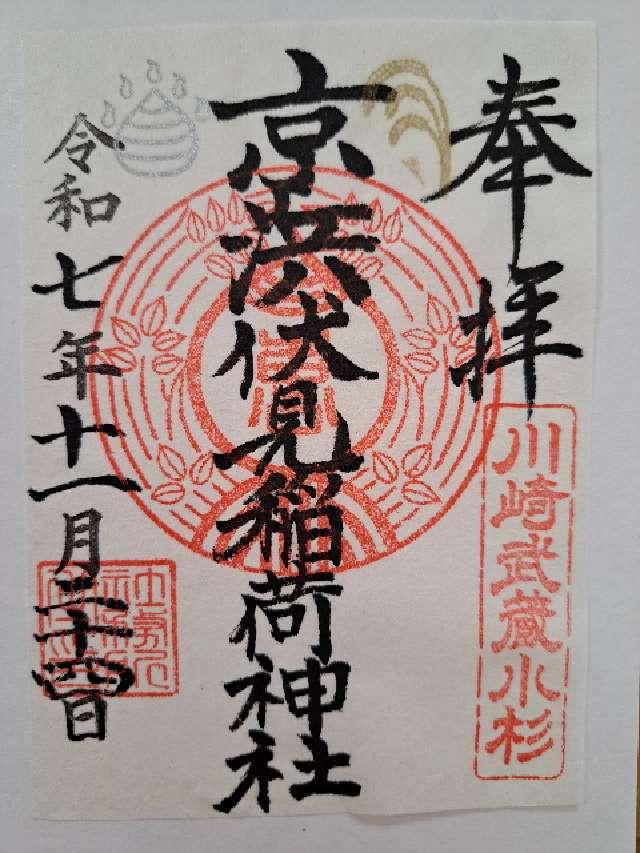 奉拝
川崎武蔵小杉
京浜伏見稲荷神社
令和七年十一月二十四日